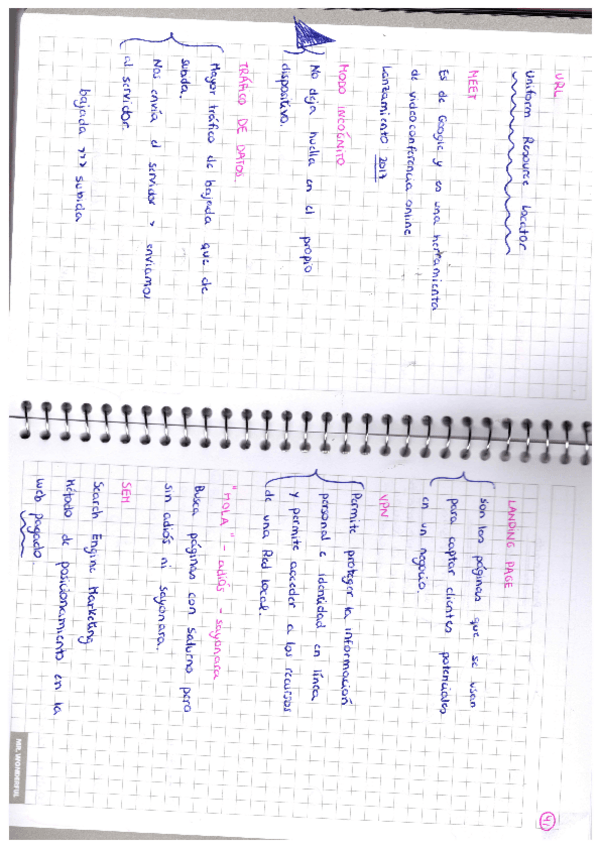 URL
Uniform Resource Locator
MEET
Es de Google y es una herramienta
de videoconferencia online
Lanzamiento 2017
MODO INCÓGNITO
No deja huella en el propio
dispositivo.
TRÁFICO DE DATOS.
Mayor tráfico de bajada que de
subida.
Nos envía el servidor > enviamos
al servidor.
bajada >>> subida
LANDING PAGE
son las páginas que se usan
para captar clientes potenciales
en un negocio.
VPN
Permite proteger la información
personal e identidad en línea
y permite acceder a los recursos
de una Red Local.
"HOLA" - adiós - sayonara
Busca páginas con saluros pero
sin adiós ni sayonara.
SEM
Search Engine Marketing
Método de posicionamiento en la
web pagado
MR. WONDERFUL
41